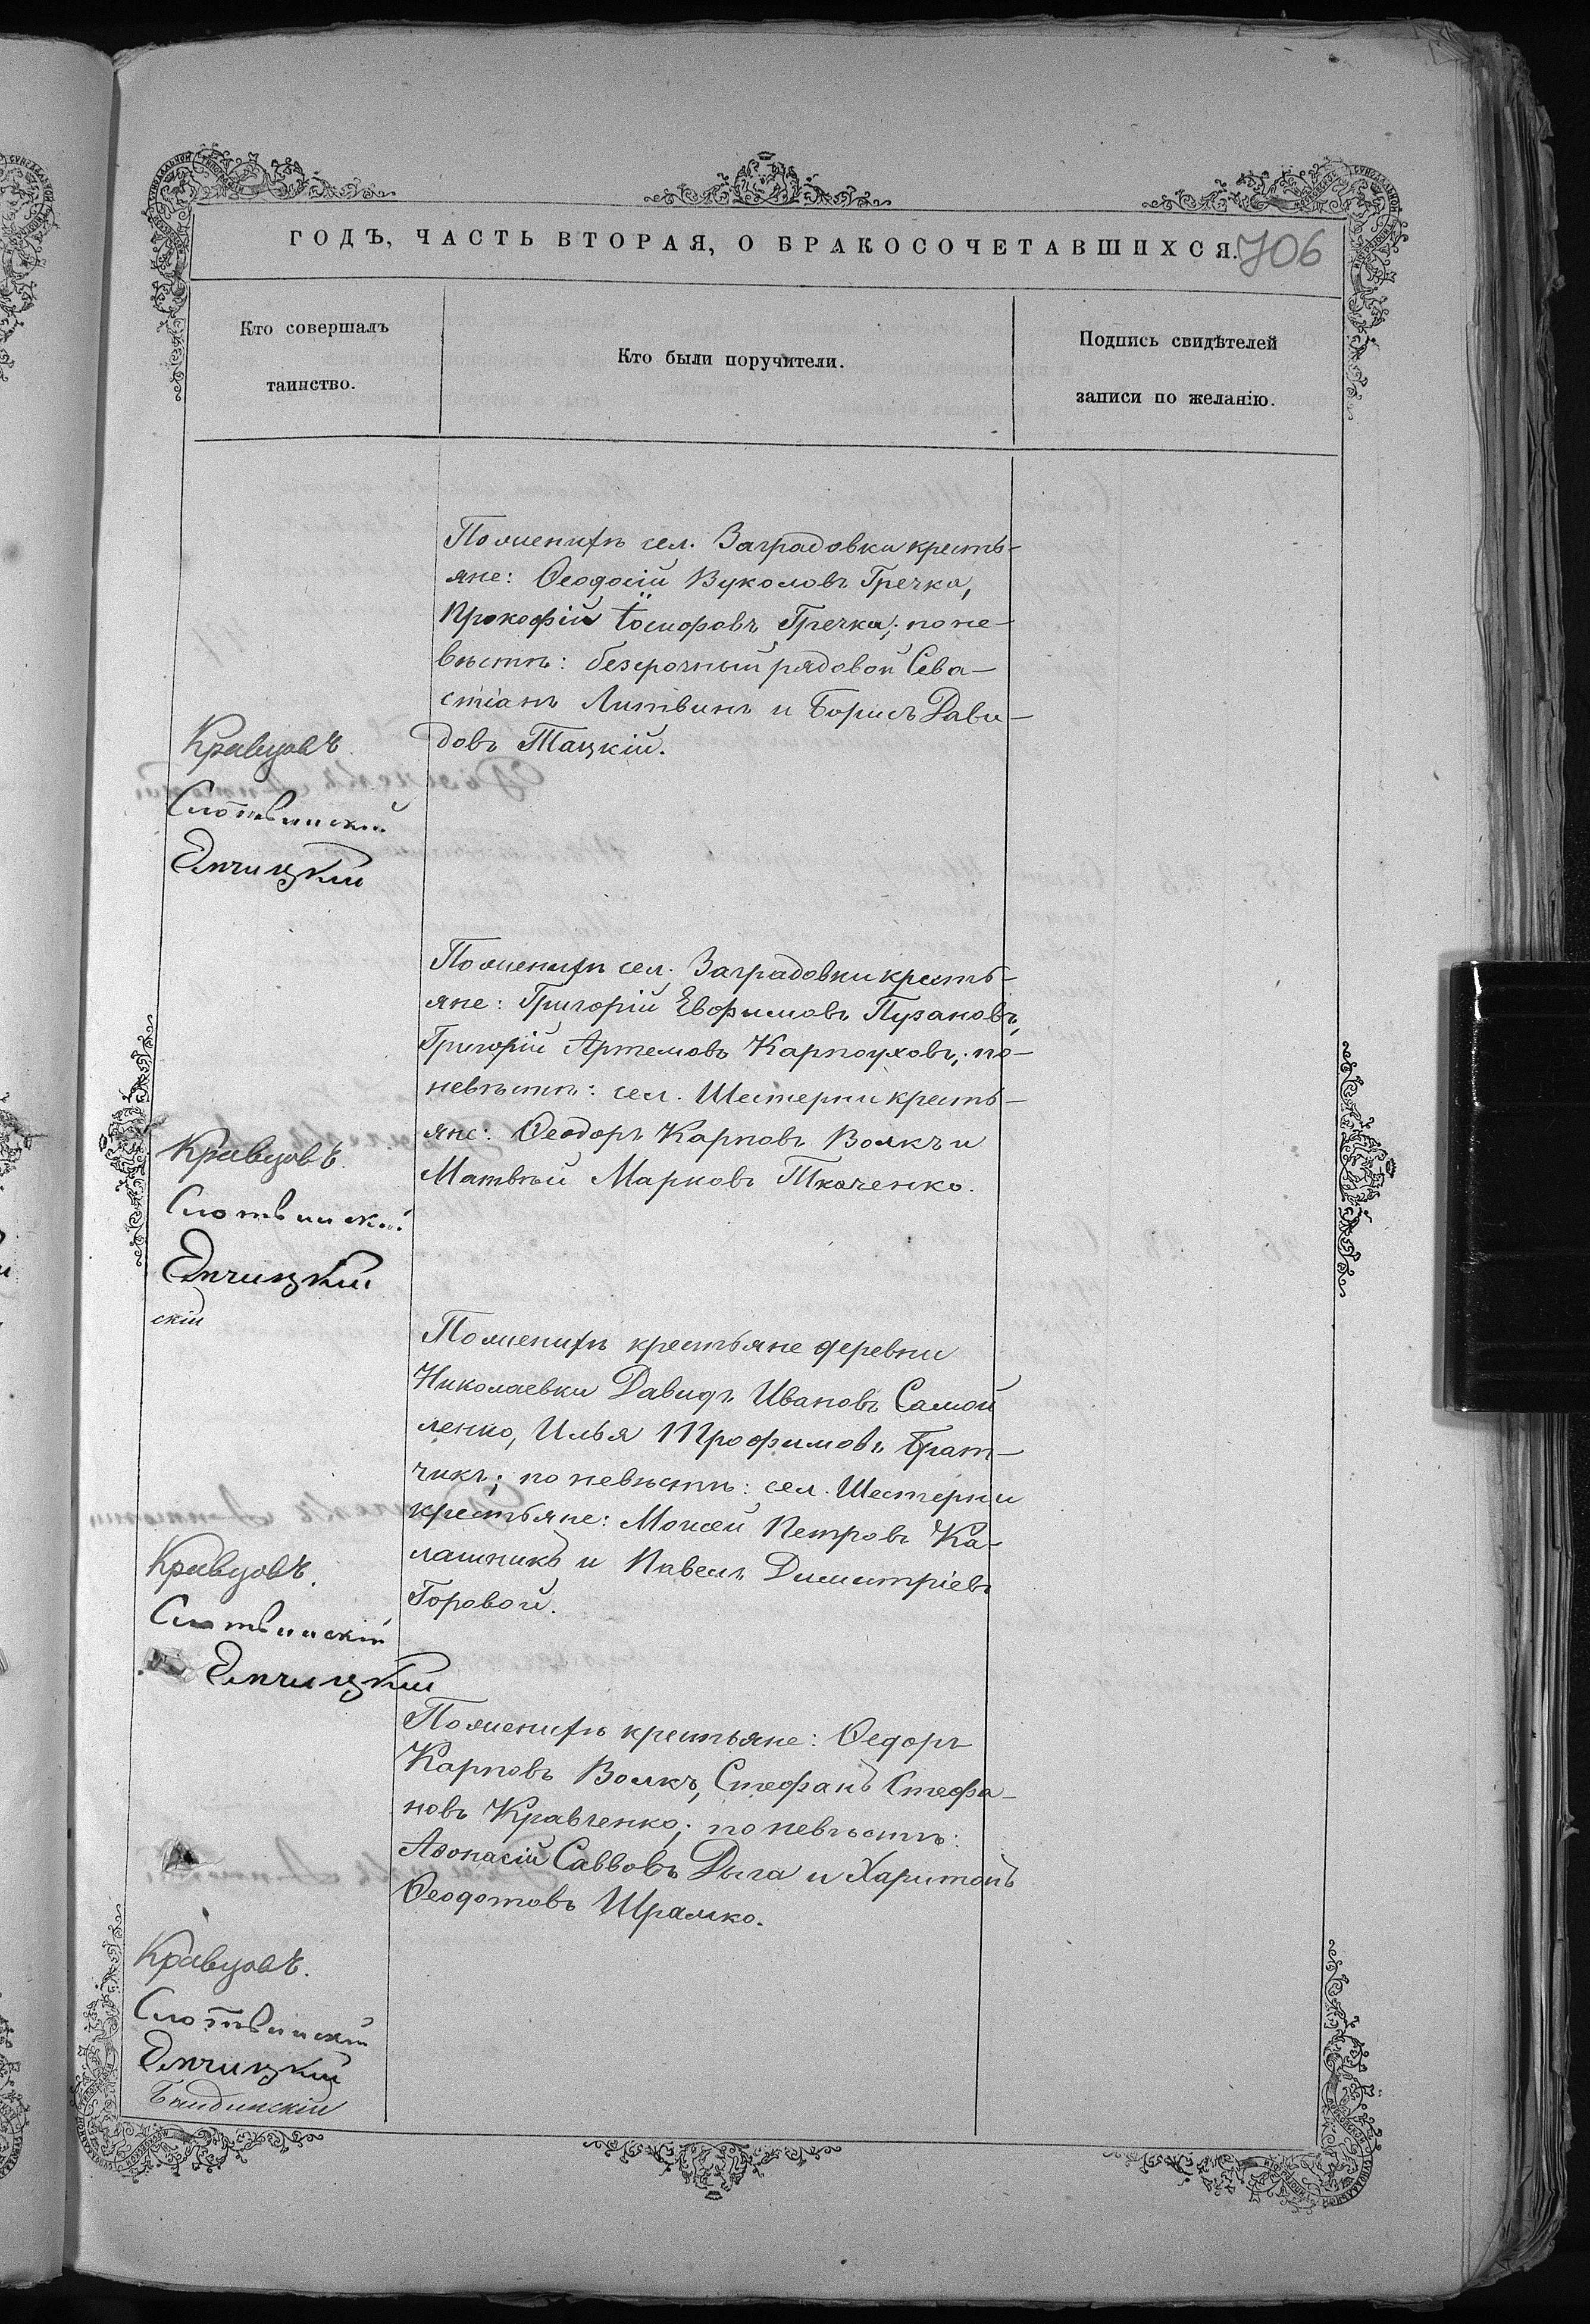 ГОДЪ, ЧАСТЬ ВТОРАЯ, О БРАКОСОЧЕТАВШИХСЯ.
706
Кто совершалъ
таинство.
Кто были поручители.
Подпись свидѣтелей
записи по желанію.
По женихѣ сел. Заградовки кресть-
яне: Ѳеодосій Вуколовъ Гречка,
Прокофій Іосифовъ Гречка; по не-
вѣстѣ: безсрочный рядовой Сева-
стіанъ Литвинъ и Борисъ Дави-
довъ Тацкій.
Кравцовъ.
Слотвинскій
По женихѣ сел. Заградовки кресть-
яне: Григорій Евфимовъ Пузановъ,
Григорій Артемовъ Карпоуховъ; по-
невѣстѣ: сел. Шестерни кресть-
яне: Ѳеодоръ Карповъ Волкъ и
Матвѣй Марковъ Ткаченко.
Кравцовъ.
Слотвинскій
скій
По женихѣ крестьяне деревни
Николаевки Давидъ Ивановъ Самой
ленко, Илья Трофимовъ Брат-
чикъ; по невѣстѣ: сел. Шестерни
крестьяне: Моисей Петровъ Ка-
лашникъ и Павелъ Димитріевъ
Горовой.
Кравцовъ.
Слотвинскій
По женихѣ крестьяне: Ѳедоръ
Карповъ Волкъ, Стефанъ Стефа-
новъ Кравченко; по невѣстѣ:
Аѳонасій Саввовъ Дыга и Харитонъ
Ѳеодотовъ Шрамко.
Кравцовъ.
Слотвинскій